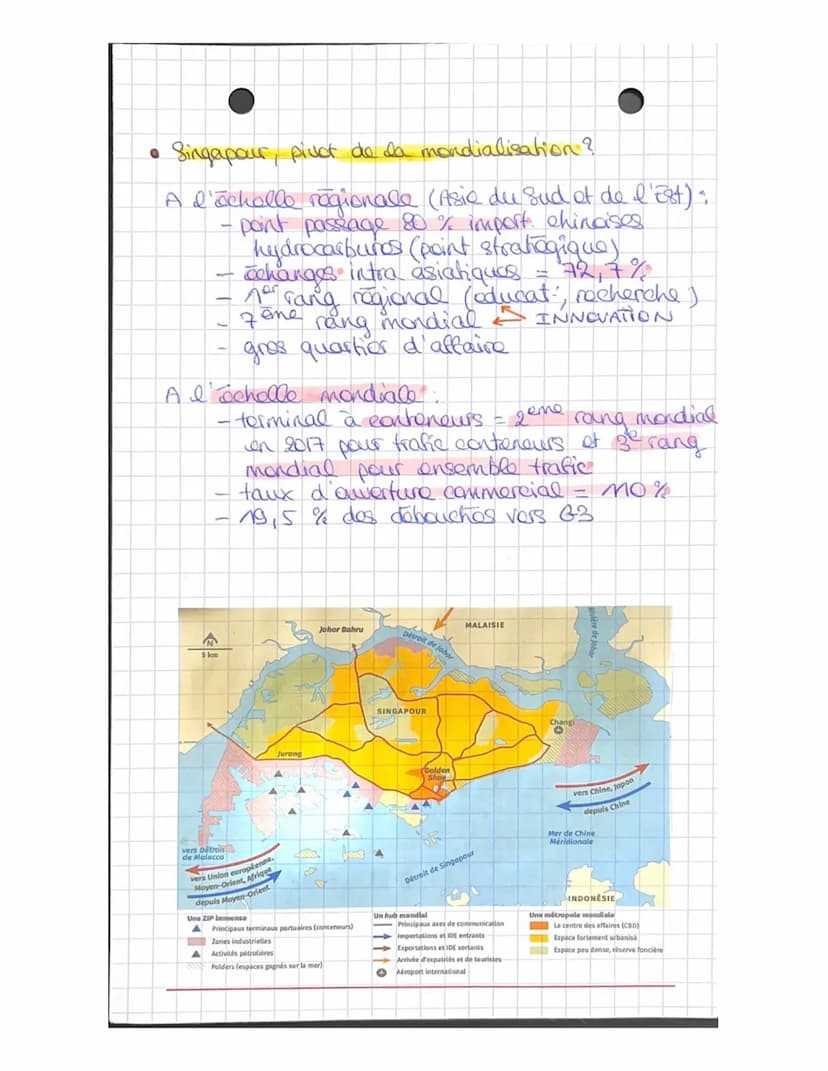 • Singapour, pivot de la mondialisation ?
A l'échelle régionale (Asie du Sud et de l'Est) :
- point passage 80 % import chinoises
hydrocarburos (point stratégique)
- échanges intra asiatiques = 72,7 %
- 1er rang régional (éducat°, recherche)
- 7ème rang mondial INNOVATION
- gros quartier d'affaire
A l'échelle mondiale :
- terminal à conteneurs = 2ème rang mondial
en 2017 pour trafic conteneurs et 3e rang
mondial pour ensemble trafic
- taux d'ouverture commercial = 110 %
- 19,5 % des débouchés vers G3
N
5 km
Johor Bahru
Détroit de Johor
MALAISIE
Rivière de Johor
SINGAPOUR
Changi
Jurong
Golden Shoe
vers Chine, Japon
depuis Chine
Mer de Chine
Méridionale
vers Détroit
de Malacca
vers Union européenne,
Moyen-Orient, Afrique
depuis Moyen-Orient
Détroit de Singapour
INDONÉSIE
Une ZIP immense
Principaux terminaux portuaires (conteneurs)
Zones industrielles
Activités pétrolières
Polders (espaces gagnés sur la mer)
Un hub mondial
Principaux axes de communication
Importations et IDE entrants
Exportations et IDE sortants
Arrivée d'expatriés et de touristes
Aéroport international
Une métropole mondiale
Le centre des affaires (CBD)
Espace fortement urbanisé
Espace peu dense, réserve foncière